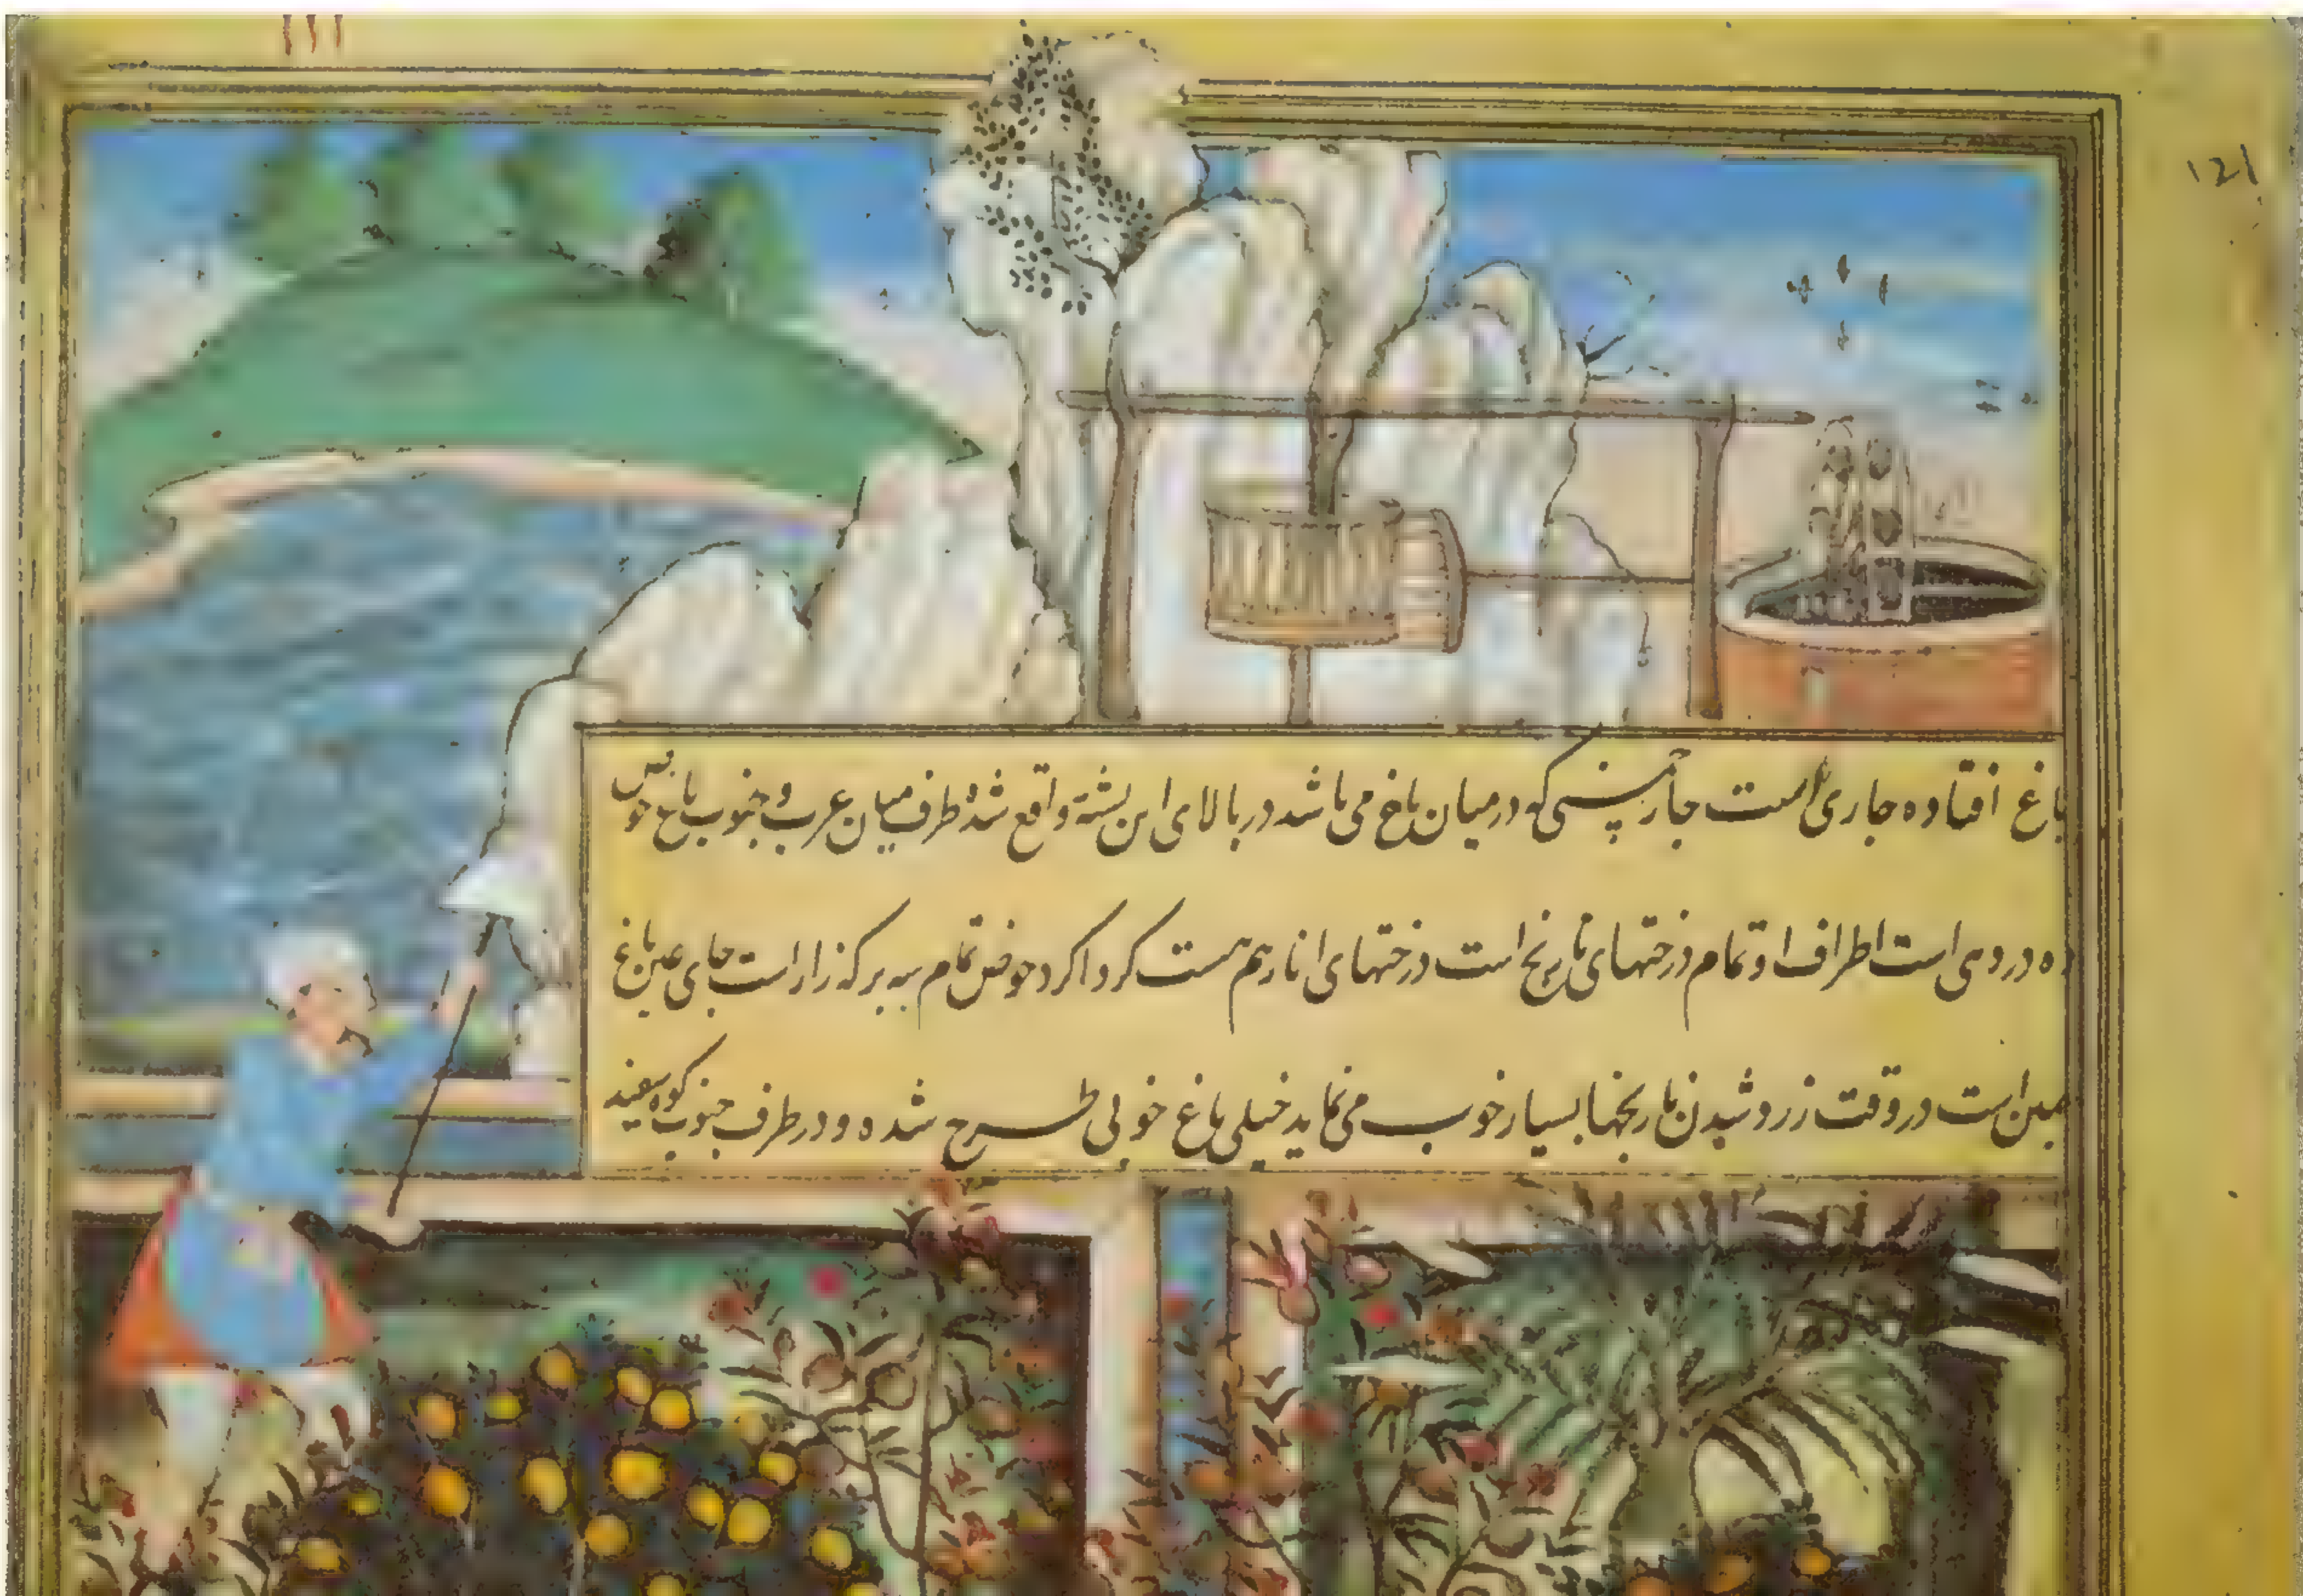 ۱۱۱
121
باغ افتاده جاری است چار چمنی که در میان باغ می باشد در بالای این پشته واقع شده طرف میان غرب و جنوب باغ حوض
ده در دهی است اطراف او تمام درختهای نارنج است درختهای انار هم هست کرداکرد حوض تمام سه برکه زار است جای عین باغ
همین است در وقت زرد شدن نارنجها بسیار خوب می نماید خیلی باغ خوبی طرح شده و در طرف جنوب کوه سفید